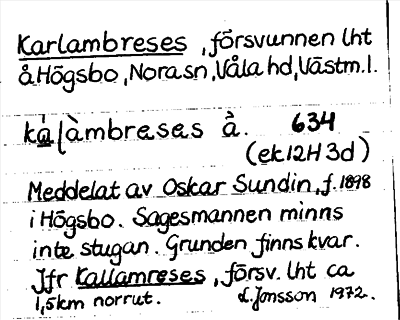 Karlambreses, försvunnen lht
å Högsbo, Nora sn, Våla hd, Västm. l.
634
(ek 12H 3d)
Meddelat av Oskar Sundin, f. 1898
i Högsbo. Sagesmannen minns
inte stugan. Grunden finns kvar.
Jfr Kallamreses, försv. lht ca
1,5 km norrut. L. Jonsson 1972.